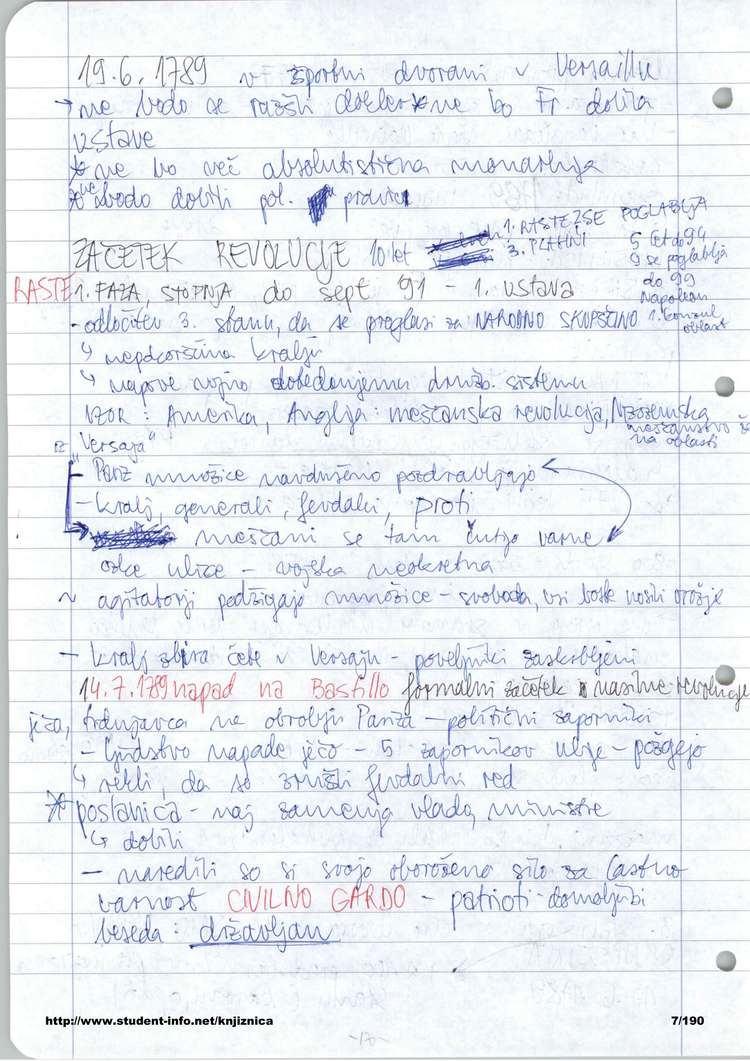 19.6.1789 v športni dvorani v Versaillu
→ ne bodo se razšli dokler ne bo Fr. dobila
ustave
* ne bo več absolutistična monarhija
* ne bodo dobili pol. pravic
ZAČETEK REVOLUCIJE 10 let
1. RASTE ZSE POGLABLJA
3. PLAHNI
5 let do 94
9 se poglablja
do 99
Napoleon
1. konzul
oblast
RASTE 1. FAZA, STOPNJA do sept 91 - 1. ustava
- odločitev 3. stanu, da se proglasi za NARODNO SKUPŠČINO
↳ nepokorščina kralju
↳ napove vojno dotedanjemu družb. sistemu
VZOR: Amerika, Anglija: meščanska revolucija, Nizozemska
meščanstvo
na oblasti
iz "Versaja"
- Pariz množice navdušeno pozdravljajo
- kralj, generali, fevdalci, proti
meščani se tam čutijo varne
ozke ulice - vojska neokretna
~ agitatorji podžigajo množice - svoboda, vsi bodo nosili orožje
- kralj zbira čete v Versaju - poveljniki zaskrbljeni
14.7.1789 napad na Bastillo formalni začetek nasilne revolucije
ječa, trdnjavca na obrobju Pariza - politični zaporniki
- ljudstvo napade ječo - 5 zapornikov ubije - požgejo
↳ rekli, da so zrušili fevdalni red
* poslanica - naj zamenja vlado, ministre
↳ dobili
- naredili so si svojo oboroženo silo za lastno
varnost CIVILNO GARDO - patrioti - domoljubi
beseda: državljan
http://www.student-info.net/knjiznica 7/190